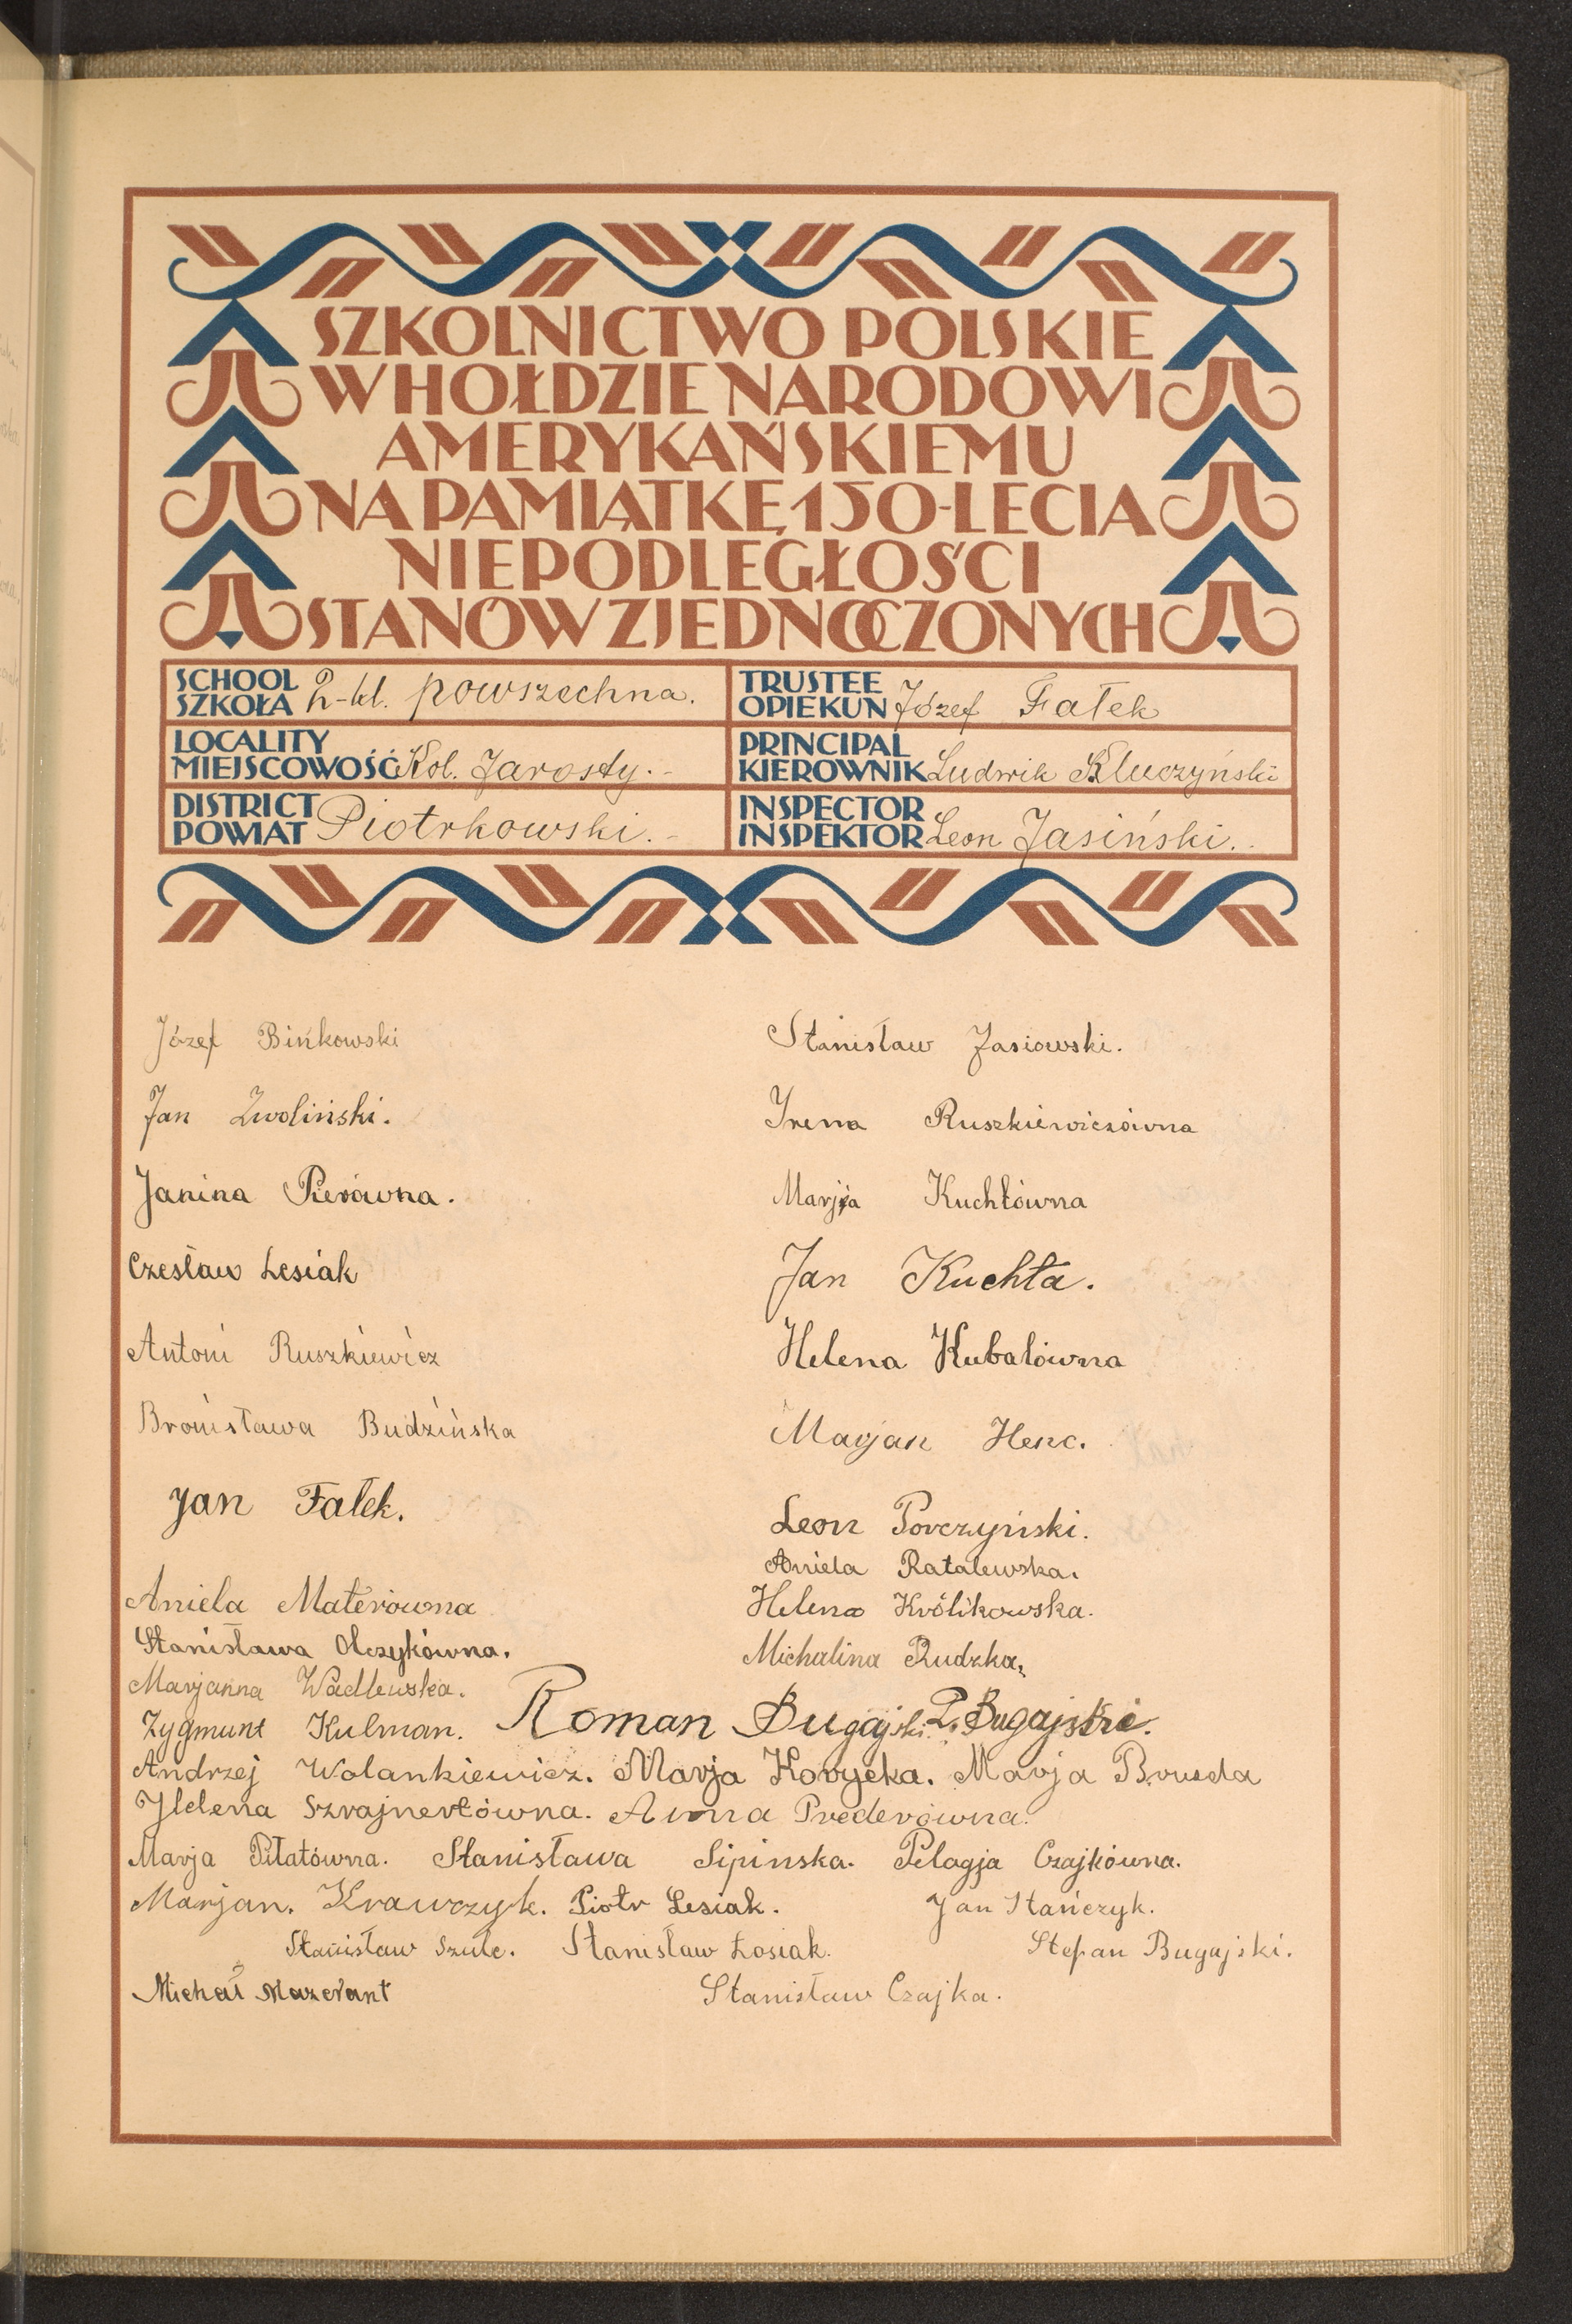 SZKOLNICTWO POLSKIE
W HOŁDZIE NARODOWI
AMERYKAŃSKIEMU
NA PAMIĄTKĘ 150-LECIA
NIEPODLEGŁOŚCI
STANÓW ZJEDNOCZONYCH
SCHOOL SZKOŁA 2-kl. powszechna.
TRUSTEE OPIEKUN Józef Fałek
LOCALITY MIEJSCOWOŚĆ Kol. Jarosty.-
PRINCIPAL KIEROWNIK Ludwik Kluczyński
DISTRICT POWIAT Piotrkowski.-
INSPECTOR INSPEKTOR Leon Jasiński.-
Józef Bińkowski
Stanisław Jasiowski.
Jan Zwoliński.
Irena Ruszkiewiczówna
Janina Pierówna.
Marjja Kuchtówna
Czesław Lesiak
Jan Kuchta.
Antoni Ruszkiewicz
Helena Kubalówna
Bronisława Budzińska
Marjan Henc.
Jan Fałek.
Leon Porczyński.
Aniela Ratalewska.
Aniela Materówna
Helena Królikowska.
Stanisława Olczykówna.
Michalina Rudzka.
Marjanna Wadlewska.
Zygmunt Kulman. Roman Bugajski. R. Bugajski.
Andrzej Wolankiewicz. Marja Korycka. Marja Bruzda
Helena Szrajnertówna. Anna Prederówna.
Marja Piłatówna. Stanisława Lipinska. Pelagja Czajkówna.
Marjan. Krawczyk. Piotr Lesiak. Jan Stańczyk.
Stanisław Szulc. Stanisław Łosiak. Stefan Bugajski.
Michał Mazerant Stanisław Czajka.